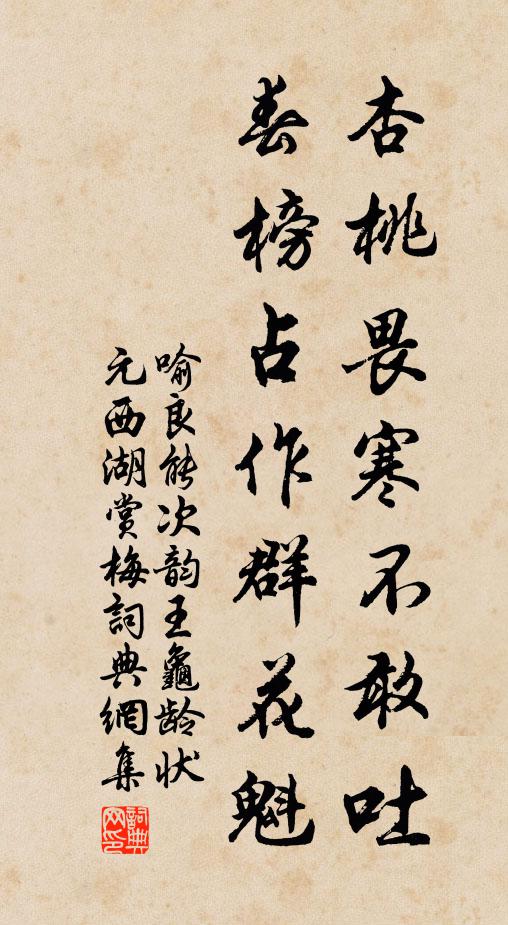 杏桃畏寒不敢吐
春榜占作群花魁
喻良能次韵王龜龄状
元西湖赏梅詞典網集
詞典网印